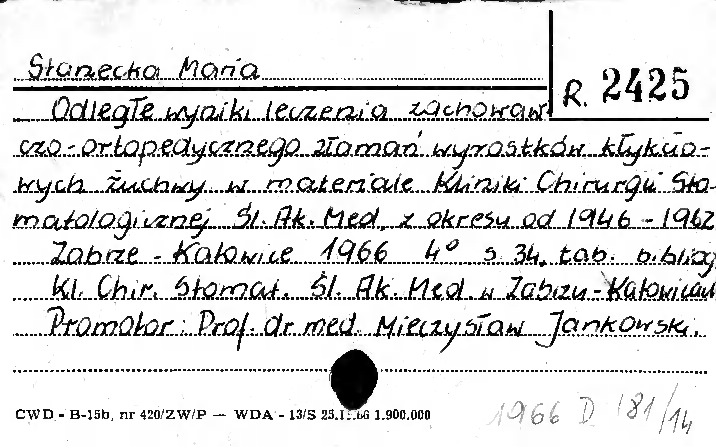 Stanecka Maria
R. 2425
Odległe wyniki leczenia zachowaw-
czo-ortopedycznego złamań wyrostków kłykcio-
wych żuchwy w materiale Kliniki Chirurgii Sto-
matologicznej Śl. Ak. Med. z okresu od 1946 - 1962
Zabrze - Katowice 1966 4° s 34, tab. bibliog
Kl. Chir. Stomat. Śl. Ak. Med. w Zabrzu-Katowicach
Promotor: Prof. dr med. Mieczysław Jankowski.
CWD - B-15b, nr 420/ZW/P — WDA - 13/S 1.900.000
1966 D 181/14